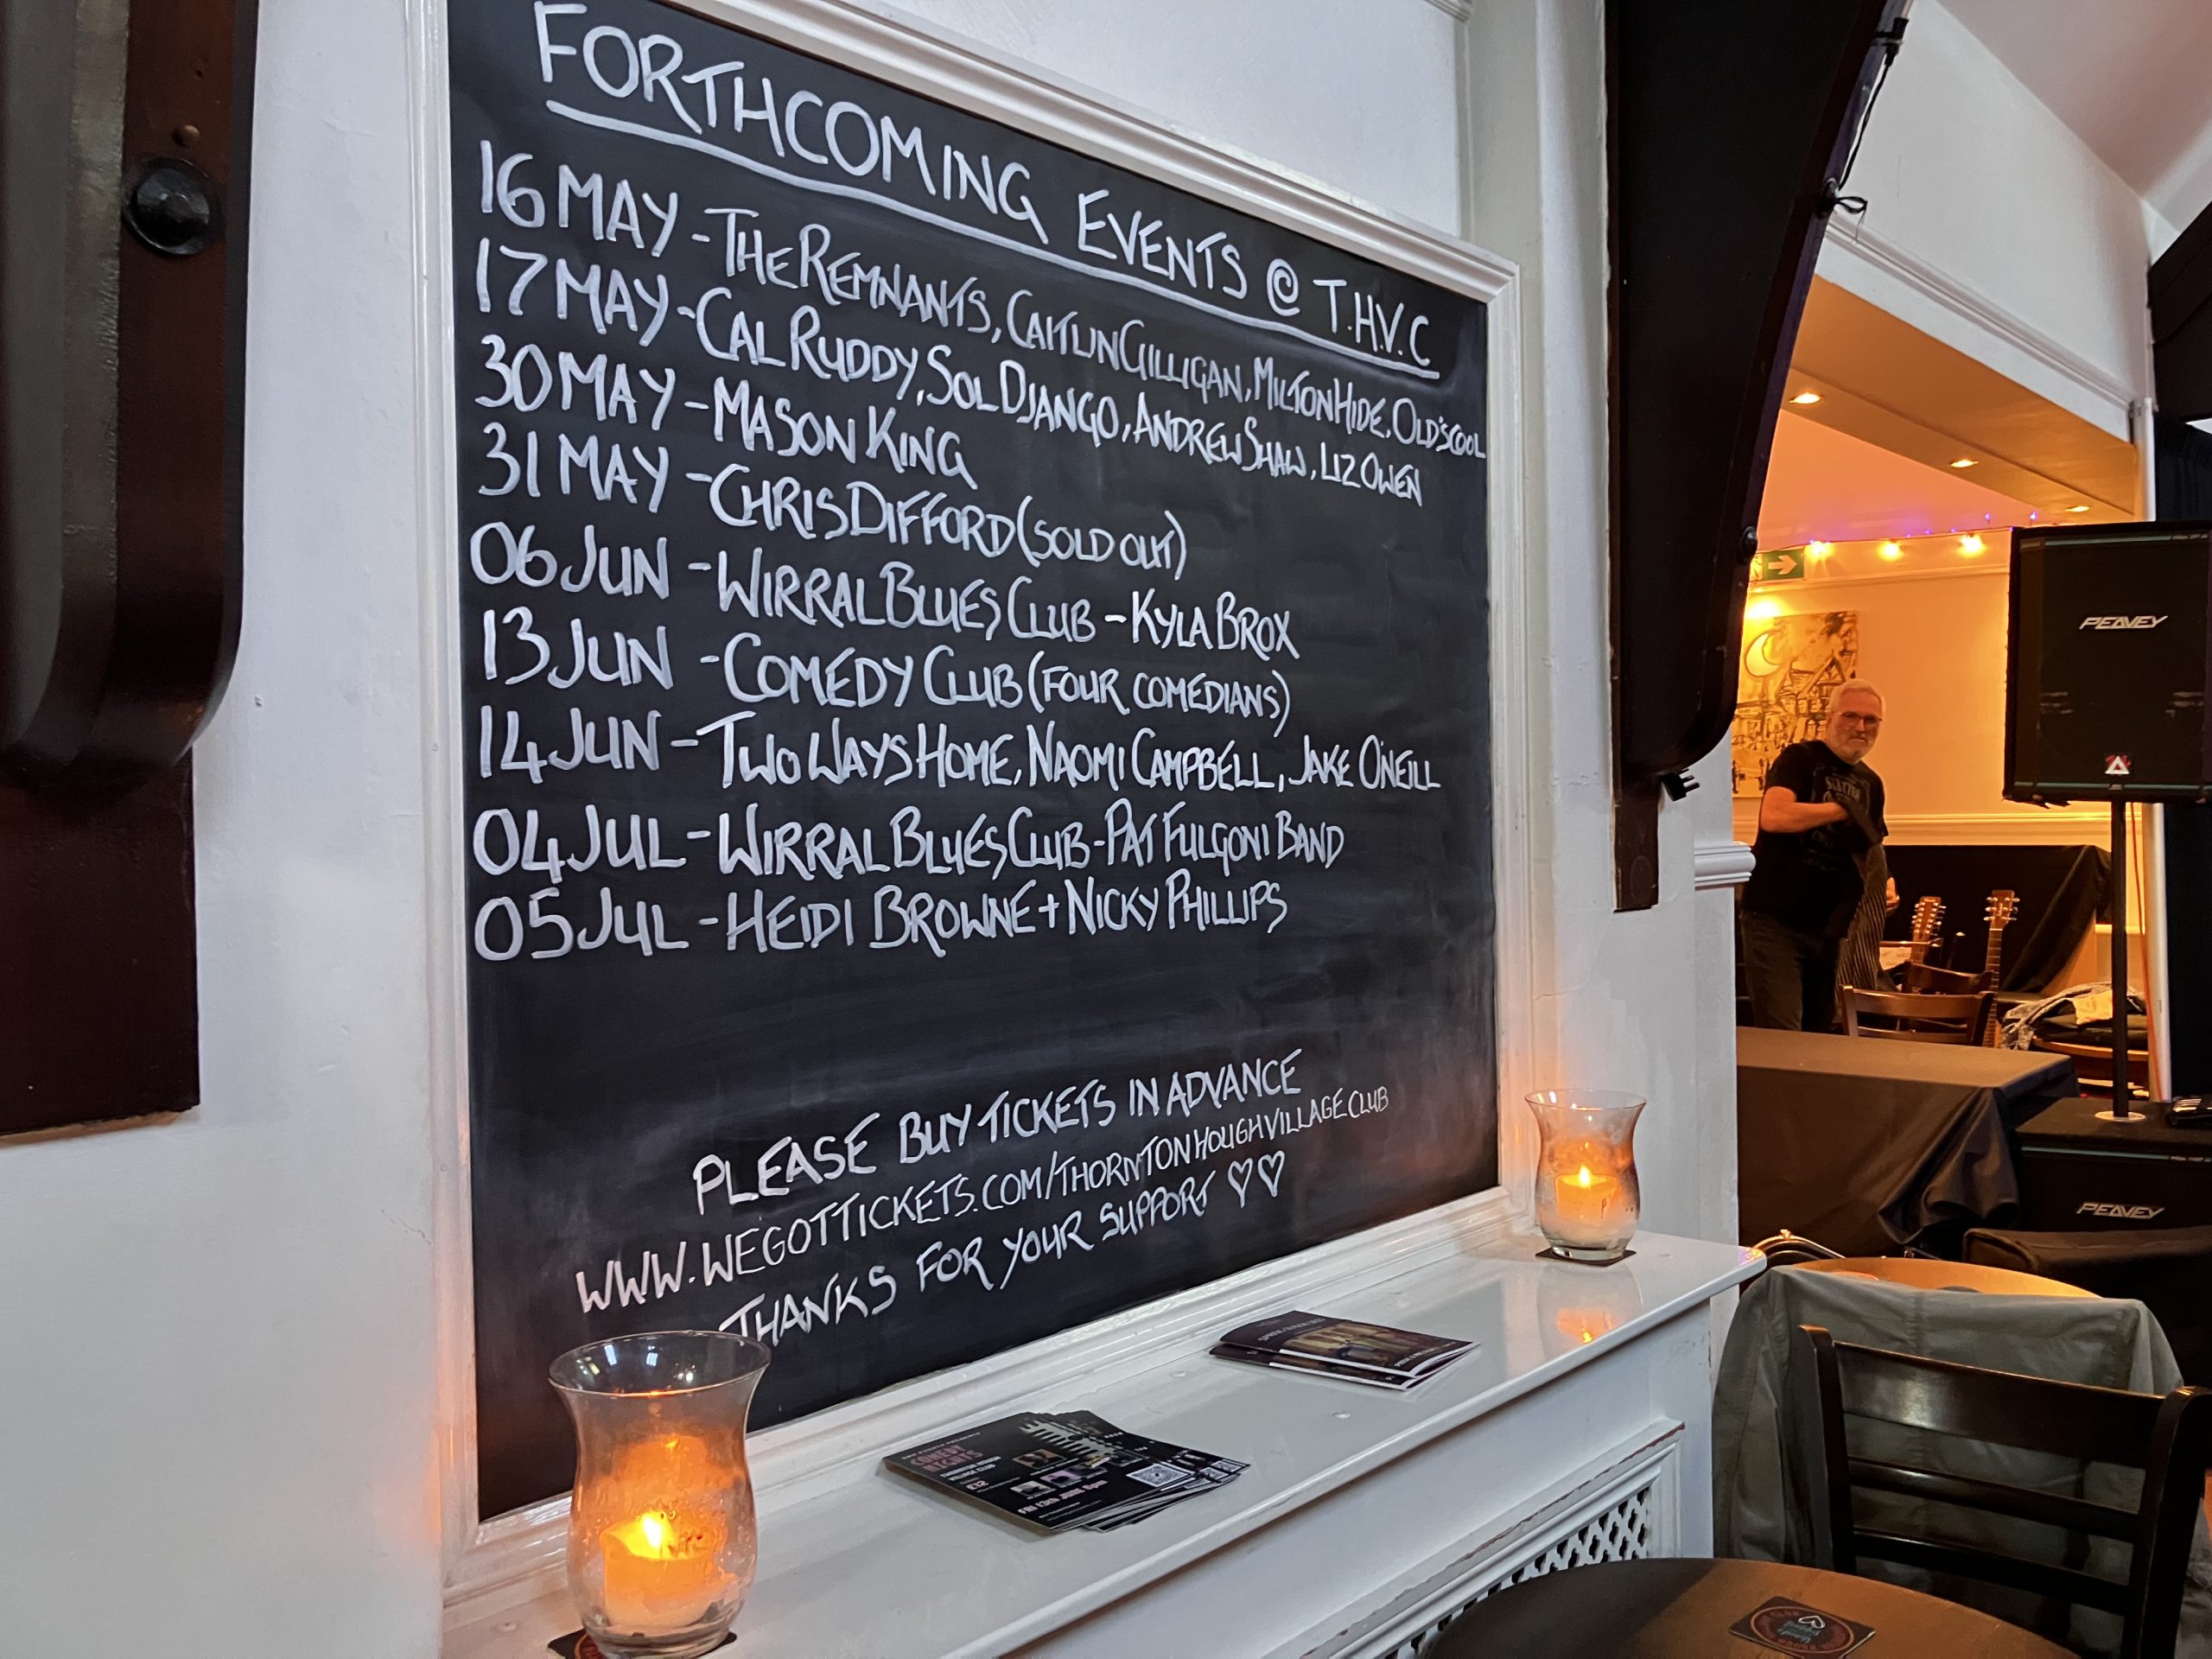 FORTHCOMING EVENTS @ T.H.V.C
16 MAY - THE REMNANTS, CAITLIN GILLIGAN, MILTON HIDE, OLD'SCOOL
17 MAY - CAL RUDDY, SOL DJANGO, ANDREW SHAW, LIZ OWEN
30 MAY - MASON KING
31 MAY - CHRIS DIFFORD (SOLD OUT)
06 JUN - WIRRAL BLUES CLUB - KYLA BROX
13 JUN - COMEDY CLUB (FOUR COMEDIANS)
14 JUN - TWO WAYS HOME, NAOMI CAMPBELL, JAKE O'NEILL
04 JUL - WIRRAL BLUES CLUB - PAT FULGONI BAND
05 JUL - HEIDI BROWNE + NICKY PHILLIPS
PLEASE BUY TICKETS IN ADVANCE
WWW.WEGOTTICKETS.COM/THORNTONHOUGHVILLAGECLUB
THANKS FOR YOUR SUPPORT ♡♡
PEAVEY
PEAVEY
COMEDY
NIGHTS
VILLAGE CLUB
£12
FRI 13th JUNE 8pm